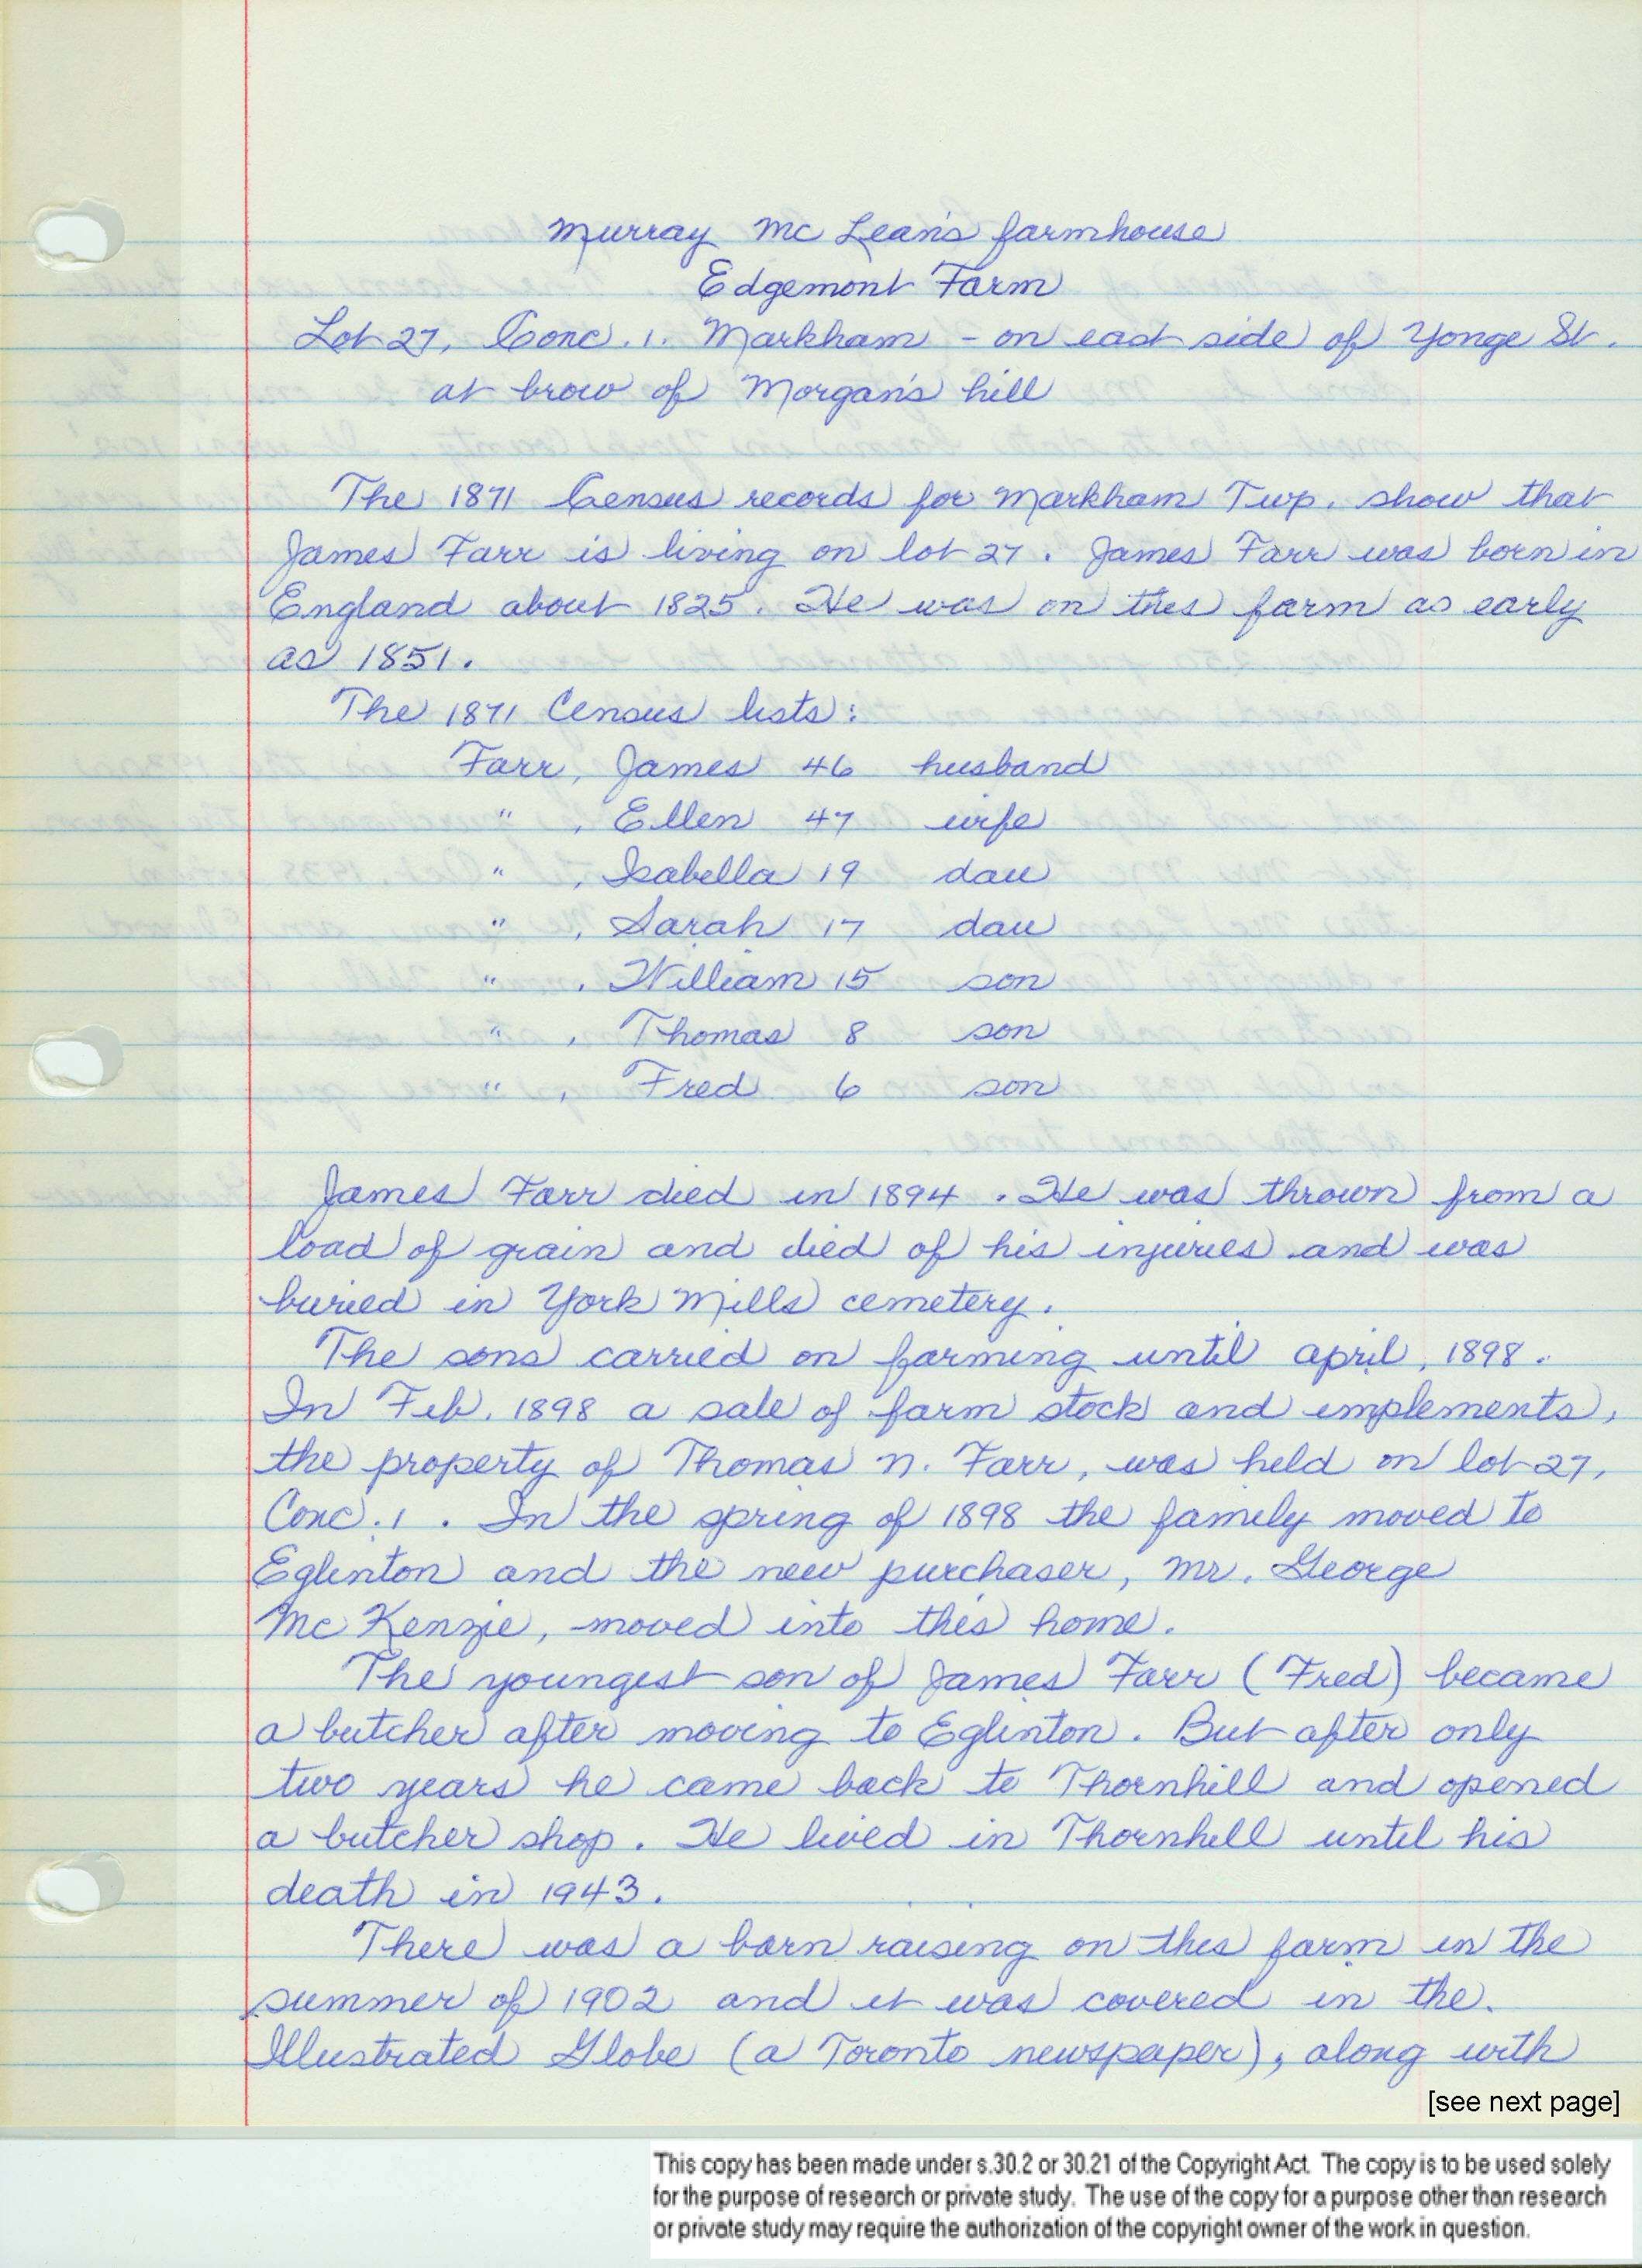 Murray Mc Lean's farmhouse
Edgemont Farm
Lot 27, Conc. 1. Markham - on east side of Yonge St.
at brow of Morgan's hill
The 1871 Census records for Markham Twp. show that
James Farr is living on lot 27. James Farr was born in
England about 1825. He was on this farm as early
as 1851.
The 1871 Census lists:
Farr, James 46 husband
" , Ellen 47 wife
" , Isabella 19 dau
" , Sarah 17 dau
" , William 15 son
" , Thomas 8 son
" , Fred 6 son
James Farr died in 1894. He was thrown from a
load of grain and died of his injuries and was
buried in York Mills cemetery.
The sons carried on farming until april, 1898.
In Feb. 1898 a sale of farm stock and implements,
the property of Thomas N. Farr, was held on lot 27,
Conc. 1. In the spring of 1898 the family moved to
Eglinton and the new purchaser, Mr. George
Mc Kenzie, moved into this home.
The youngest son of James Farr (Fred) became
a butcher after moving to Eglinton. But after only
two years he came back to Thornhill and opened
a butcher shop. He lived in Thornhill until his
death in 1943.
There was a barn raising on this farm in the
summer of 1902 and it was covered in the.
Illustrated Globe (a Toronto newspaper), along with
[see next page]
This copy has been made under s.30.2 or 30.21 of the Copyright Act. The copy is to be used solely
for the purpose of research or private study. The use of the copy for a purpose other than research
or private study may require the authorization of the copyright owner of the work in question.